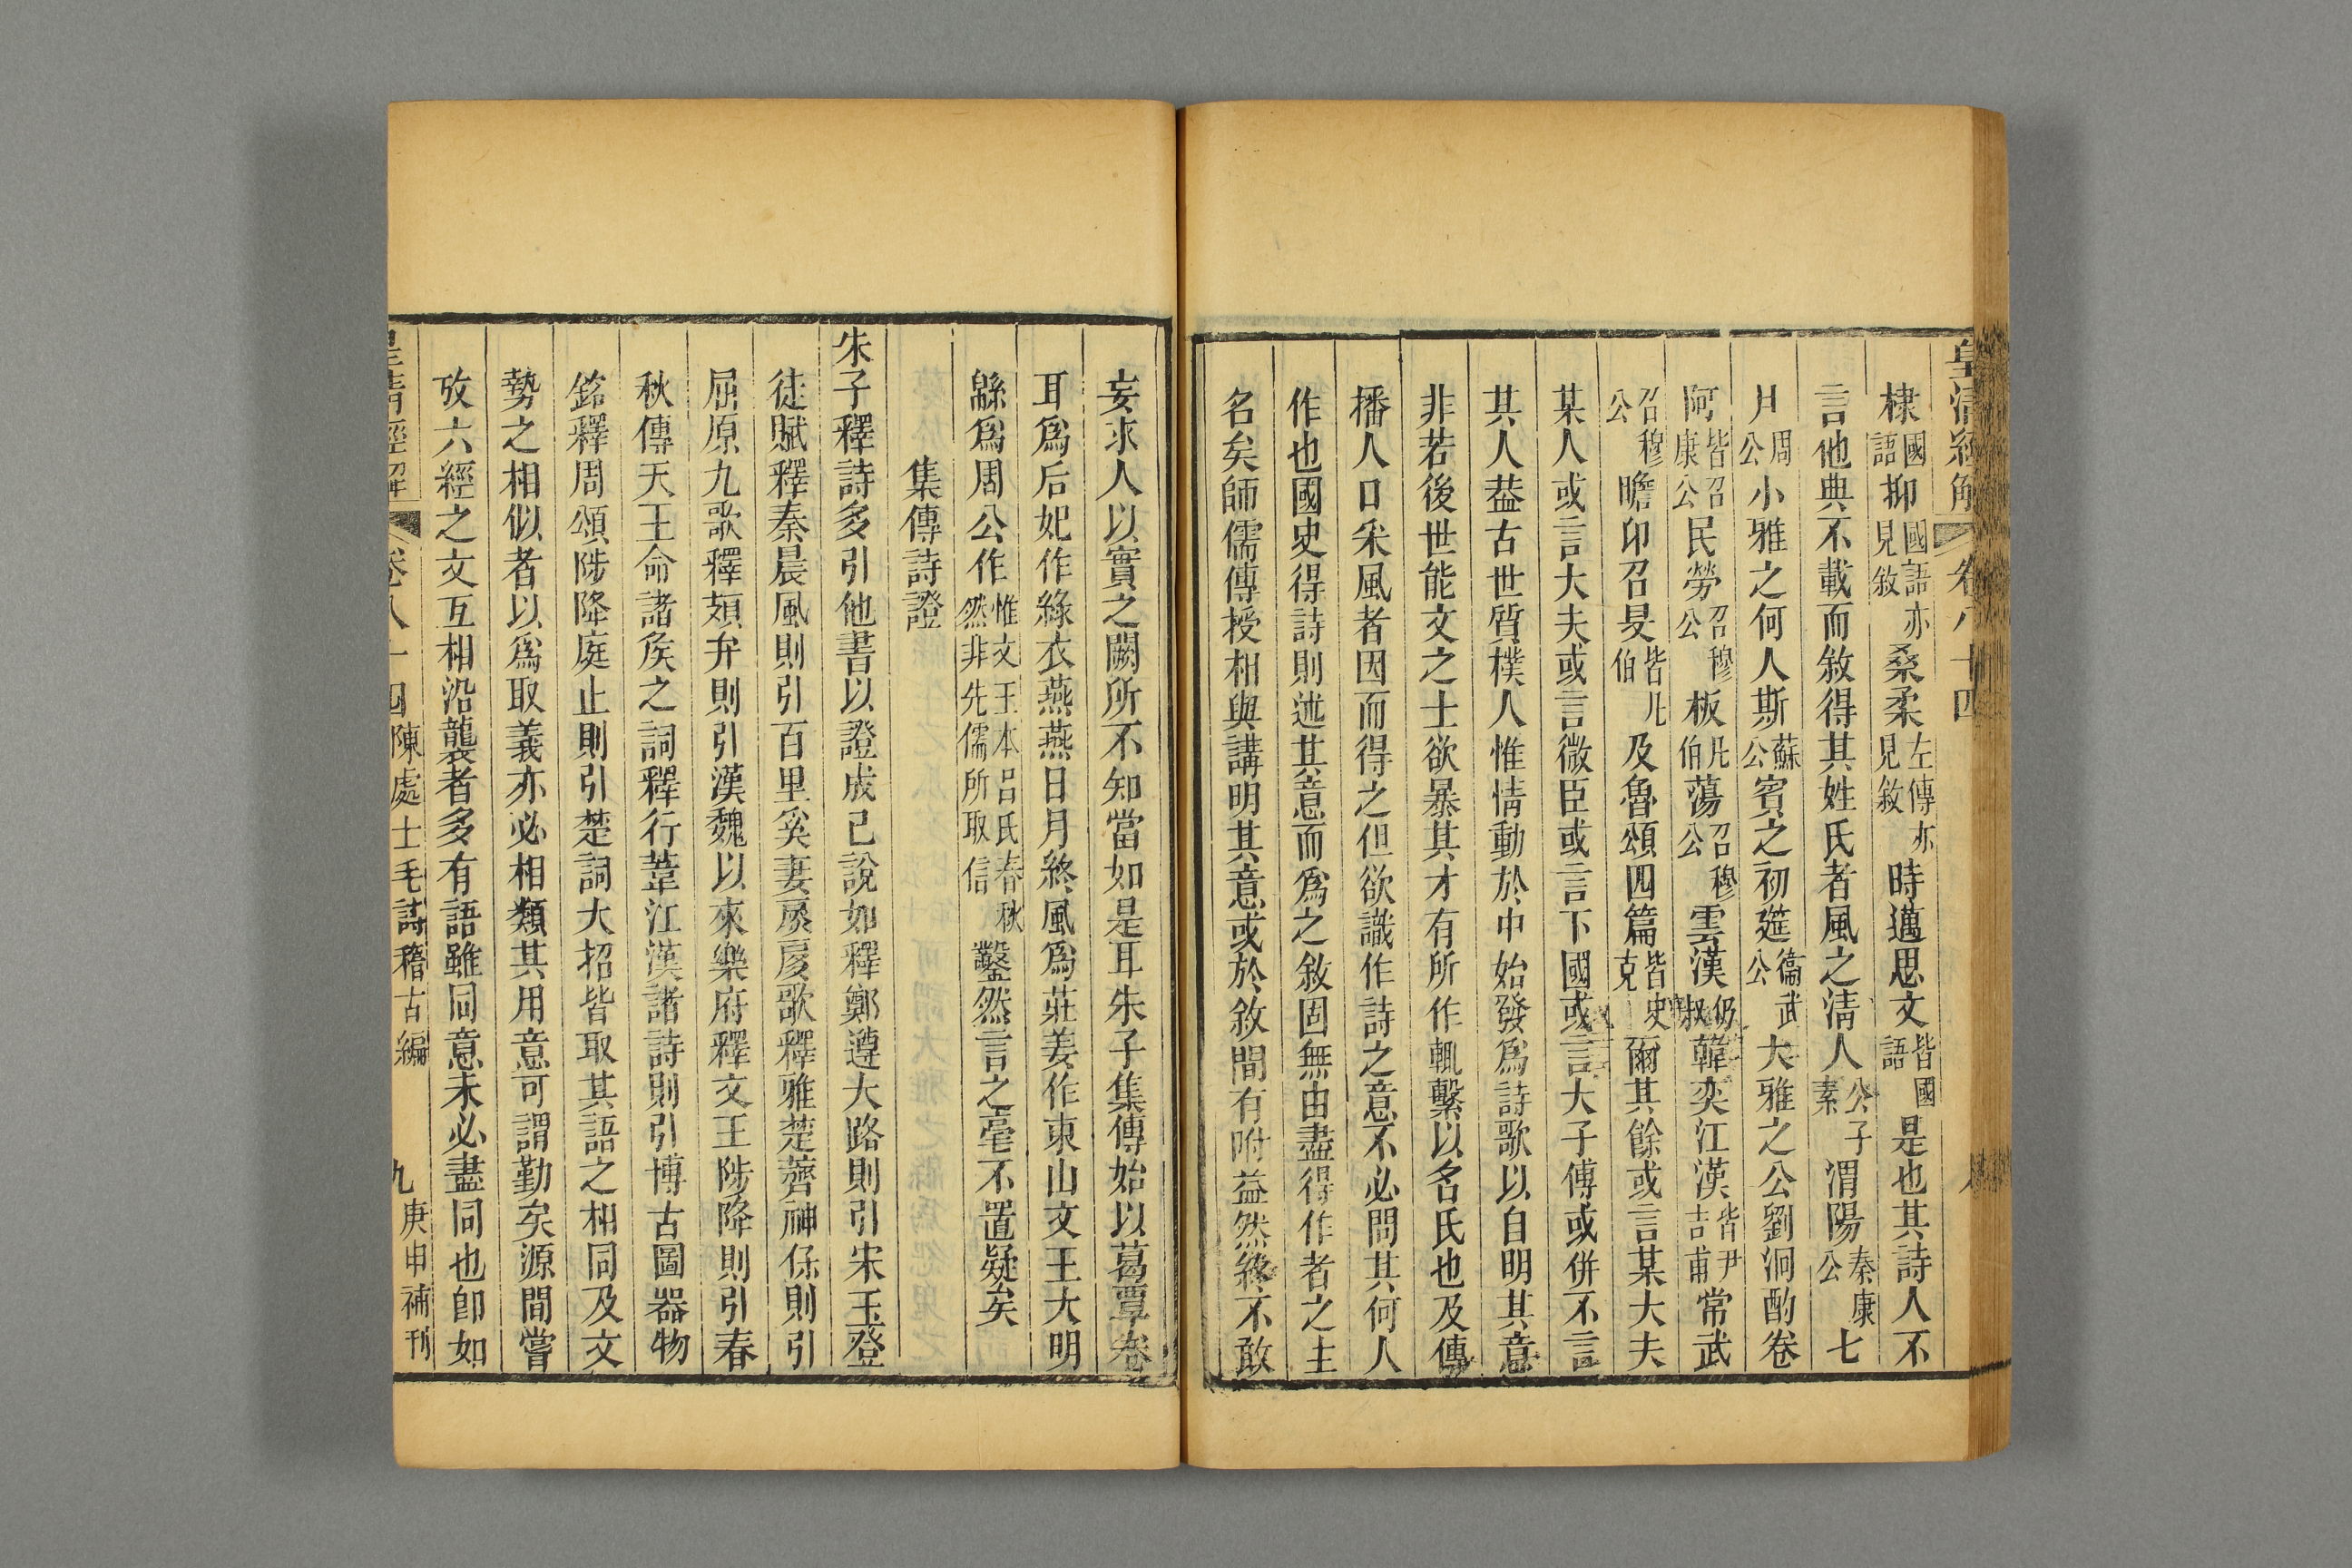 皇清經解 卷八十四
棣國語抑國語亦見敘桑柔左傳亦見敘時邁思文皆國語是也其詩人不
言他典不載而敘得其姓氏者風之清人公子素渭陽秦康公七
月周公小雅之何人斯蘇公賓之初筵衞武公大雅之公劉泂酌卷
阿皆召康公民勞召穆公板凡伯蕩召穆公雲漢仍叔韓奕江漢皆尹吉甫常武
召穆公瞻卬召旻皆凡伯及魯頌四篇皆史克爾其餘或言某大夫
某人或言大夫或言微臣或言下國或言大子傅或併不言
其人葢古世質樸人惟情動於中始發爲詩歌以自明其意
非若後世能文之士欲暴其才有所作輒繫以名氏也及傳
播人口采風者因而得之但欲識作詩之意不必問其何人
作也國史得詩則述其意而爲之敘固無由盡得作者之主
名矣師儒傳授相與講明其意或於敘間有附益然終不敢
妄求人以實之闕所不知當如是耳朱子集傳始以葛覃卷
耳爲后妃作綠衣燕燕日月終風爲莊姜作東山文王大明
緜爲周公作惟文王本呂氏春秋然非先儒所取信鑿然言之毫不置疑矣
集傳詩證
朱子釋詩多引他書以證成己說如釋鄭遵大路則引宋玉登
徒賦釋秦晨風則引百里奚妻扊扅歌釋雅楚薺神保則引
屈原九歌釋頍弁則引漢魏以來樂府釋文王陟降則引春
秋傳天王命諸矦之詞釋行葦江漢諸詩則引博古圖器物
銘釋周頌陟降庭止則引楚詞大招皆取其語之相同及文
勢之相似者以爲取義亦必相類其用意可謂勤矣源間嘗
攷六經之文互相沿襲者多有語雖同意未必盡同也卽如
皇清經解 卷八十四 陳處士毛詩稽古編 九 庚申補刊